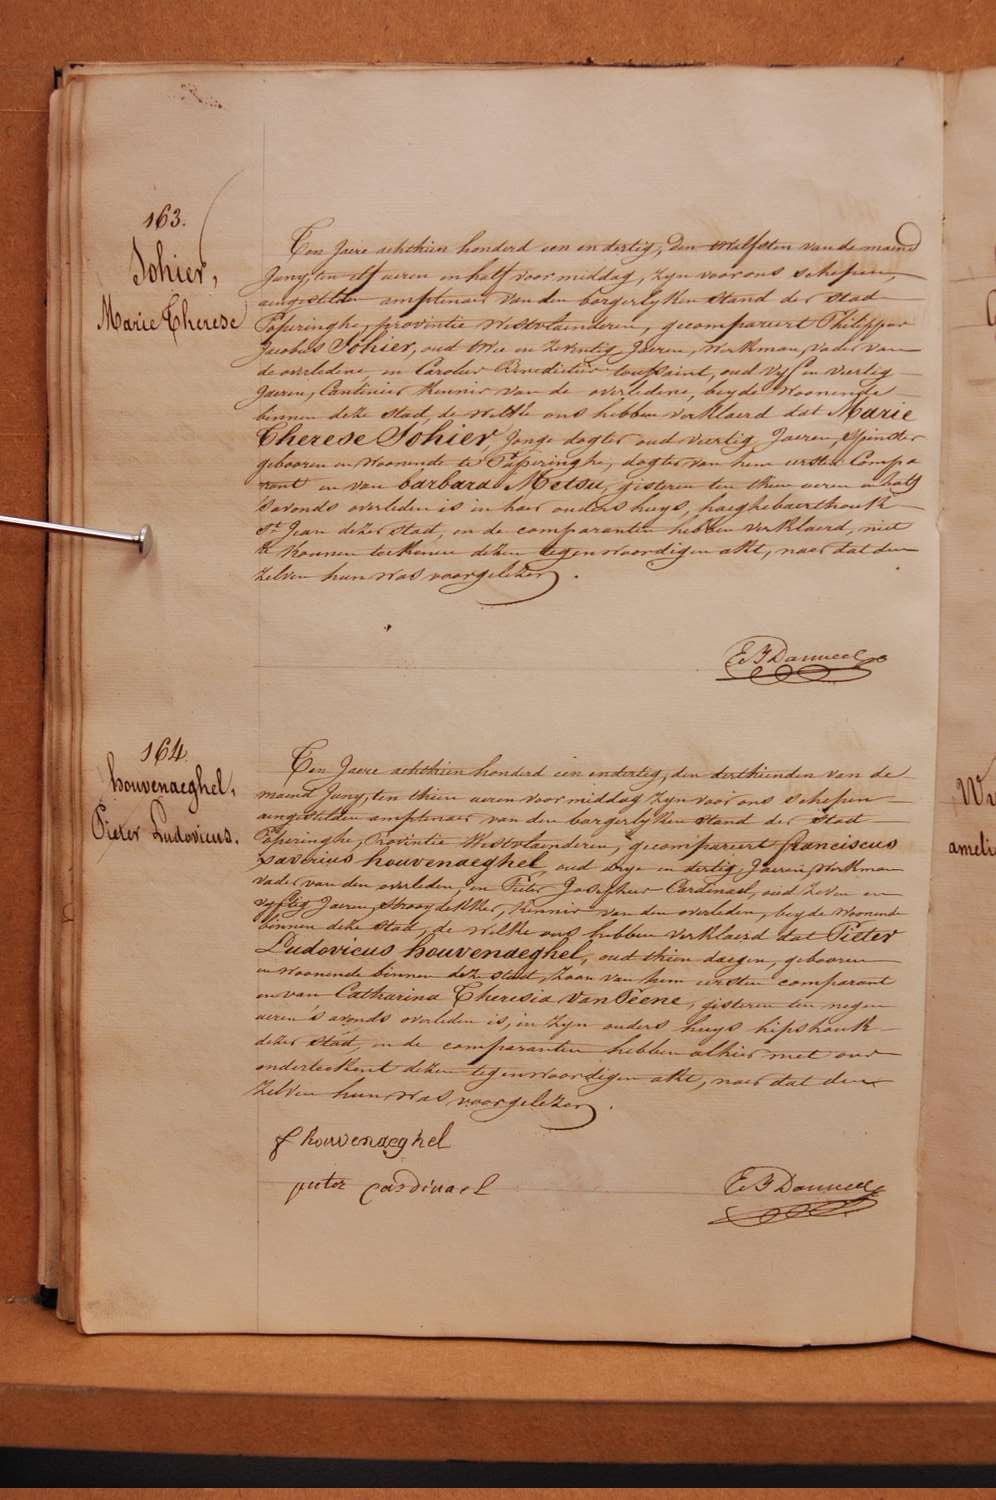 163.
Sohier,
Marie Therese
Ten Jaere achthien honderd een en dertig, den twelfsten van de maend
Juny, ten elf ueren en half voor middag, zyn voor ons schepen,
aengestelden amptenaer van den borgerlyken stand der stad
Poperinghe, provintie Westvlaenderen, gecompareert Philippus
Jacobus Sohier, oud twee en zeventig Jaeren, Werkman, vader van
de overledene, en Carolus Benedictus toussaint, oud vyf en veertig
Jaeren, Cantinier kennis van de overledene, beyde Woonende
binnen deze stad, de welke ons hebben verklaerd dat Marie
Therese Sohier, Jonge dogter oud veertig Jaeren, Spinster
gebooren en woonende te Poperinghe, dogter van hem eersten Compa
rant en van barbara Metsu, gisteren ten thien ueren en half
's avonds overleden is in haer ouders huys, haeghebaerthouk
St. Jean dezer stad, en de comparanten hebben verklaerd, niet
te konnen teekenen dezen tegenwoordigen akt, naer dat den
zelven hun was voorgelezen.
E. F Danneel
164.
houvenaeghel,
Pieter Ludovicus.
Ten Jaere achthien honderd een en dertig, den derthienden van de
maend Juny, ten thien ueren voor middag zyn voor ons schepen
aengestelden amptenaer van den borgerlyken stand der stad
Poperinghe, Provintie Westvlaenderen, gecompareert franciscus
xaverius houvenaeghel, oud drye en dertig Jaeren, Werkman
vader van den overleden, en Pieter Josephus Cardinael, oud zeven en
vyftig Jaeren, Strooydekker, kennis van den overleden, beyde woonende
binnen deze stad, de welke ons hebben verklaerd dat Pieter
Ludovicus houvenaeghel, oud thien daegen, gebooren
en woonende binnen deze stad, zoon van hem eersten comparant
en van Catharina Theresia Van Péene, gisteren ten negen
ueren 's avonds overleden is, in zyn ouders huys hipshouk
dezer stad, en de comparanten hebben alhier met ons
onderteekent dezen tegenwoordigen akt, naer dat den
zelven hun was voorgelezen.
f houvenaeghel
pieter Cardinael
E. F Danneel